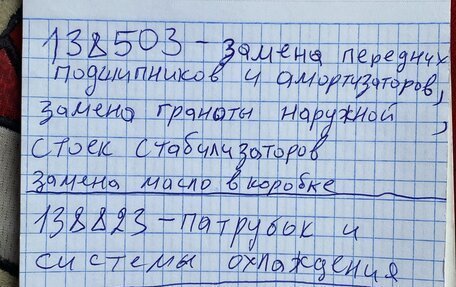 138503 - замена передних
подшипников и амортизаторов,
замена гранаты наружной,
стоек стабилизаторов
замена масло в коробке
138823 - патрубок и
системы охлаждения